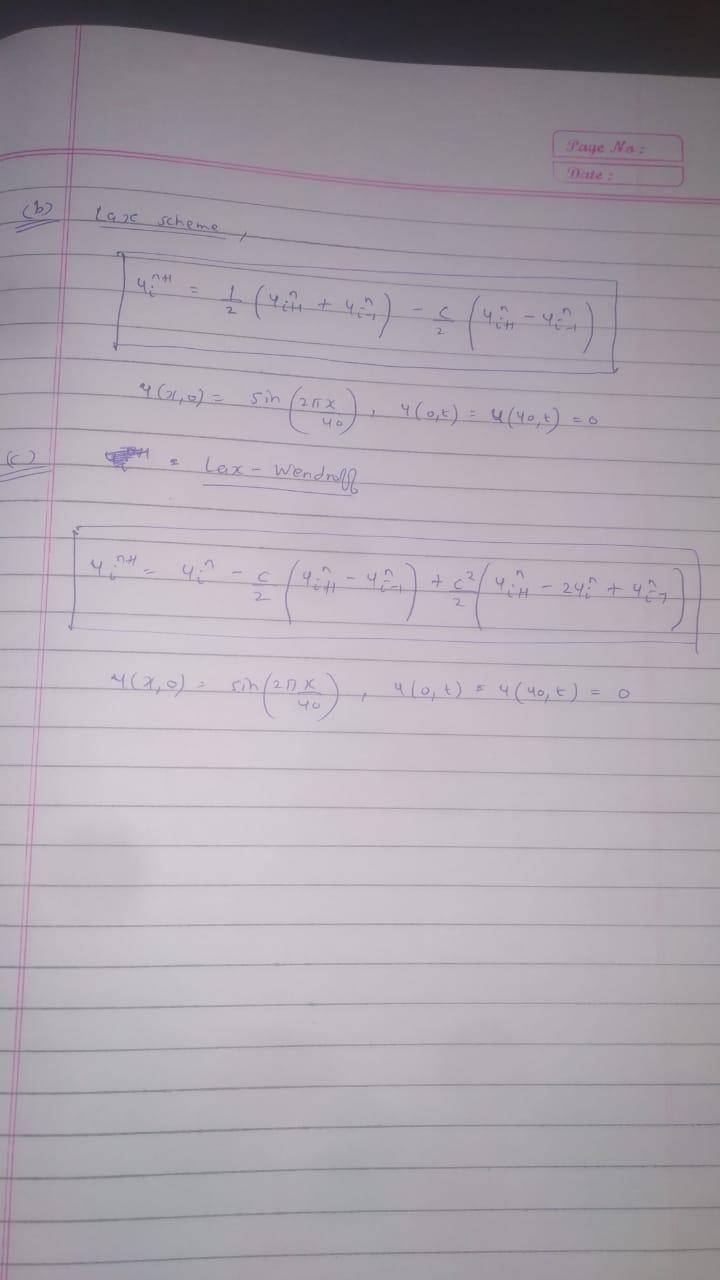 Page No :
Date :
(b) Lax scheme,
u_i^{n+1} = 1/2 (u_{i+1}^n + u_{i-1}^n) - c/2 (u_{i+1}^n - u_{i-1}^n)
u(x,0) = sin(2πx/40), u(0,t) = u(40,t) = 0
(c) = Lax - Wendroff
u_i^{n+1} = u_i^n - c/2 (u_{i+1}^n - u_{i-1}^n) + c^2/2 (u_{i+1}^n - 2u_i^n + u_{i-1}^n)
u(x,0) = sin(2πx/40), u(0,t) = u(40,t) = 0